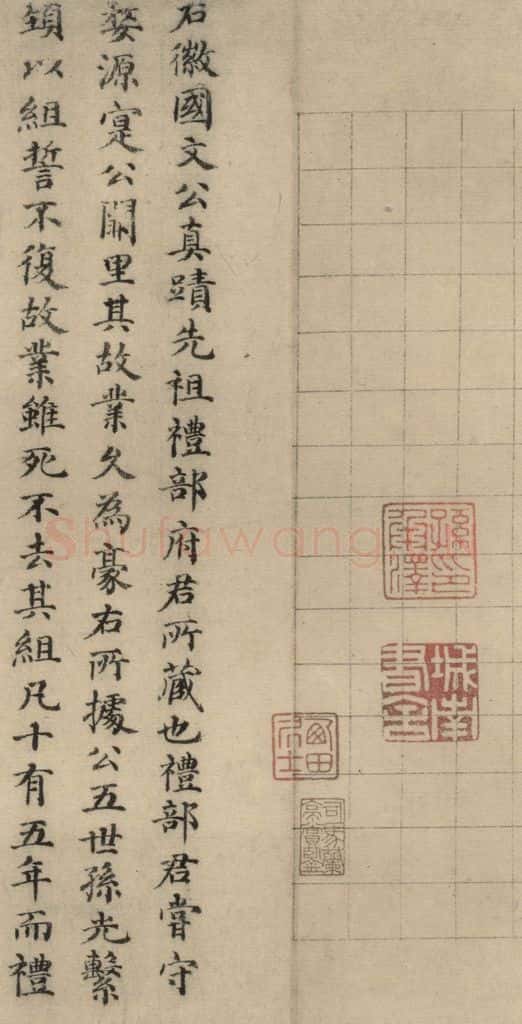 右徽國文公真蹟先祖禮部府君所藏也禮部君嘗守
婺源寔公闕里其故業久為豪右所據公五世孫光繫
頸以組誓不復故業雖死不去其組凡十有五年而禮
孫印承澤
Shufawang